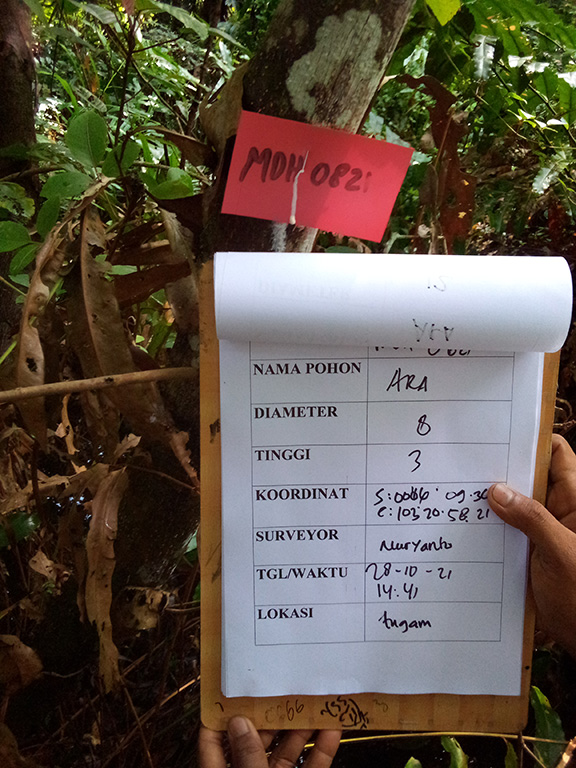 MDH 0821
NAMA POHON ARA
DIAMETER 8
TINGGI 3
KOORDINAT S:0066.09.36
E:103.20.58.21
SURVEYOR Nuryanto
TGL/WAKTU 28-10-21
14:41
LOKASI tugam
0066